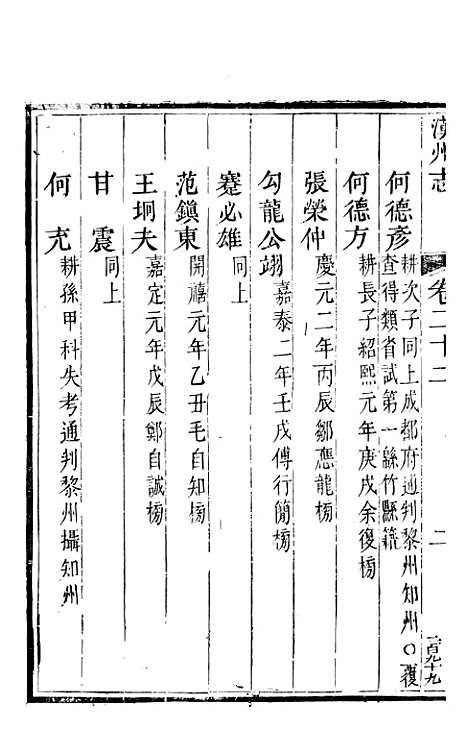 漢州志 卷二十二 二 一百九十九
何德彥 耕次子同上成都府通判黎州知州〇覆
查得類省試第一縣竹縣籍
何德方 耕長子紹熙元年庚戌余復榜
張榮仲 慶元二年丙辰鄒應龍榜
勾龍公翊 嘉泰二年壬戌傅行簡榜
蹇必雄 同上
范鎭東 開禧元年乙丑毛自知榜
王坰夫 嘉定元年戊辰鄭自誠榜
甘震 同上
何充 耕孫甲科失考通判黎州攝知州